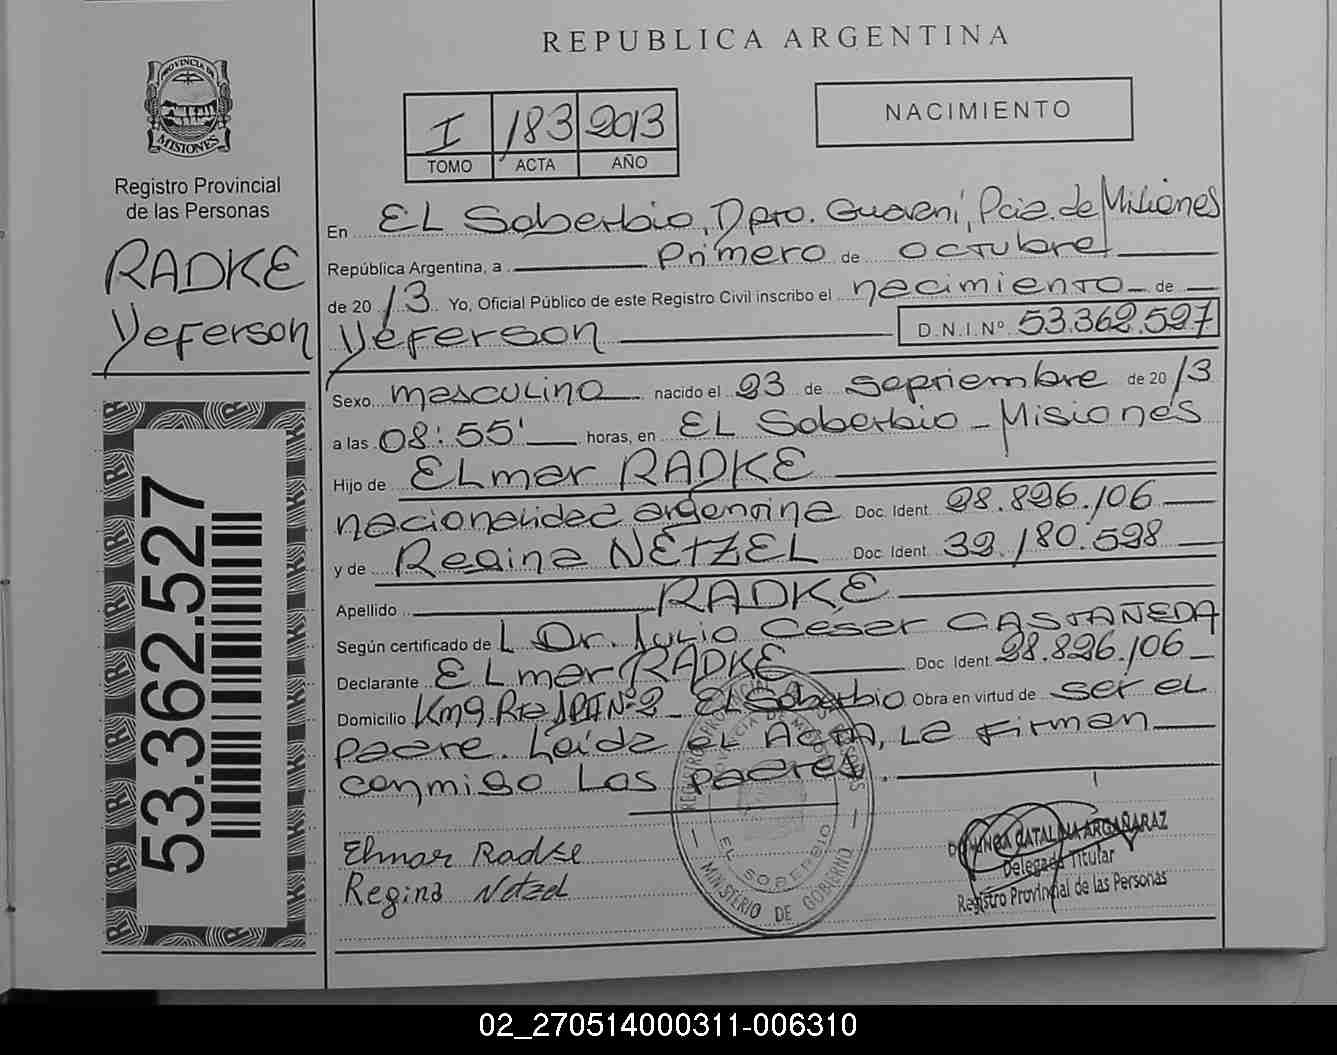 REPUBLICA ARGENTINA
PROVINCIA DE
MISIONES
Registro Provincial
de las Personas
RADKE
Yeferson
53.362.527
I 183 2013
TOMO ACTA AÑO
NACIMIENTO
En EL Soberbio, Dpto. Guarani, Pcia. de Misiones
República Argentina, a primero de octubre
de 2013 Yo, Oficial Público de este Registro Civil inscribo el nacimiento de
Yeferson D.N.I.Nº 53.362.527
Sexo masculino nacido el 23 de septiembre de 2013
a las 08:55' horas, en EL Soberbio - Misiones
Hijo de ELmar RADKE
nacionalidad argentina Doc. Ident. 28.826.106
y de Regina NETZEL Doc. Ident. 39.180.598
Apellido RADKE
Según certificado de L Dr. Julio Cesar CASTAÑEDA
Declarante ELmar RADKE Doc. Ident. 28.826.106
Domicilio Km9 Rta Nº2 El Soberbio Obra en virtud de ser el
padre. Leida el Acta, La firman
conmigo Los padres.
Elmar Radke
Regina Netzel
EL SOBERBIO
MINISTERIO DE GOBIERNO
DOMINGA CATALINA ARGAÑARAZ
Delegada Titular
Registro Provincial de las Personas
02_270514000311-006310